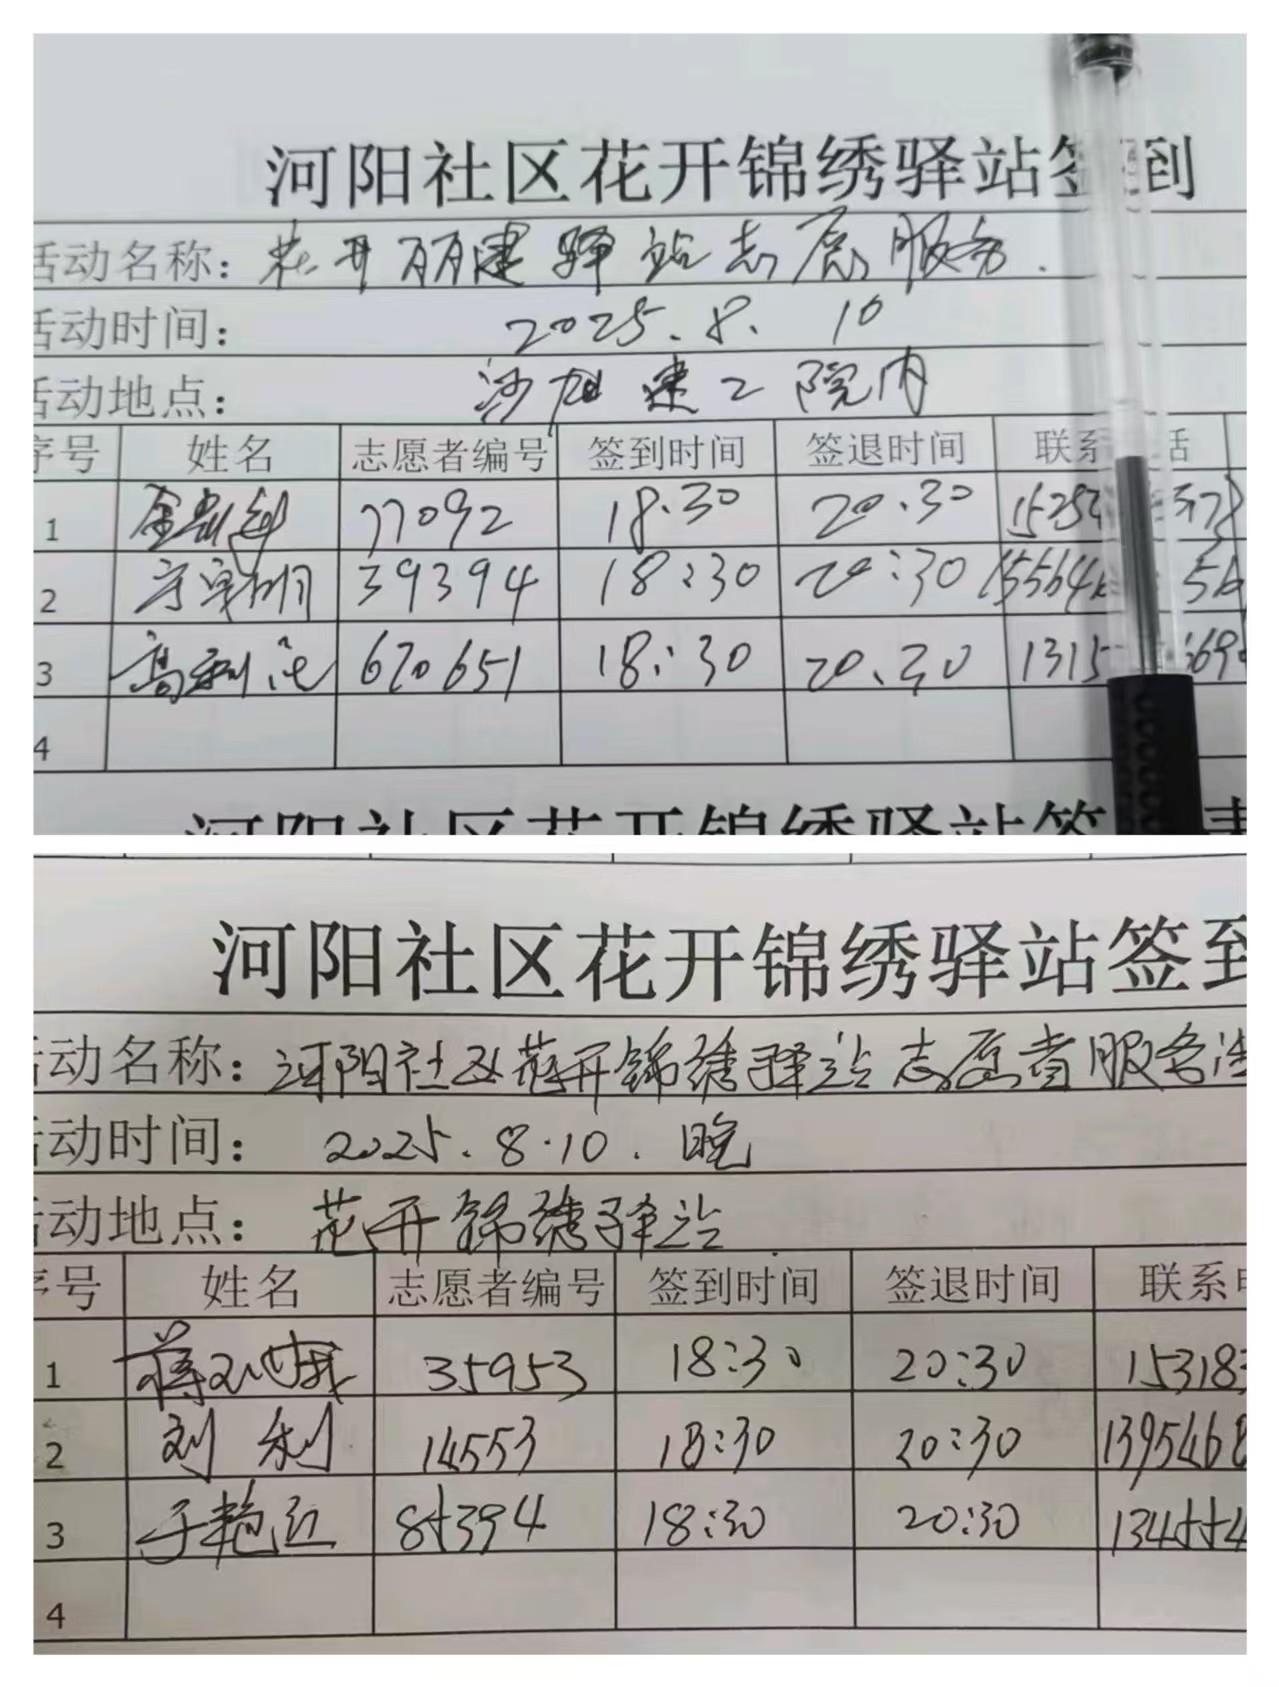 河阳社区花开锦绣驿站签到
活动名称：花开丽建驿站志愿服务.
活动时间： 2025.8. 10
活动地点： 建工院内
序号 姓名 志愿者编号 签到时间 签退时间 联系 话
1 77092 18:30 20:30
2 39394 18:30 20:30
3 670651 18:30 20:30 1315
4
河阳社区花开锦绣驿站签
河阳社区花开锦绣驿站签到
活动名称：河阳社区花开锦绣驿站志愿者服务活
活动时间： 2025.8.10.晚
活动地点： 花开锦绣驿站
序号 姓名 志愿者编号 签到时间 签退时间 联系电
1 35953 18:30 20:30 153183
2 刘利 14553 18:30 20:30 1395468
3 于艳红 85394 18:30 20:30 134554
4